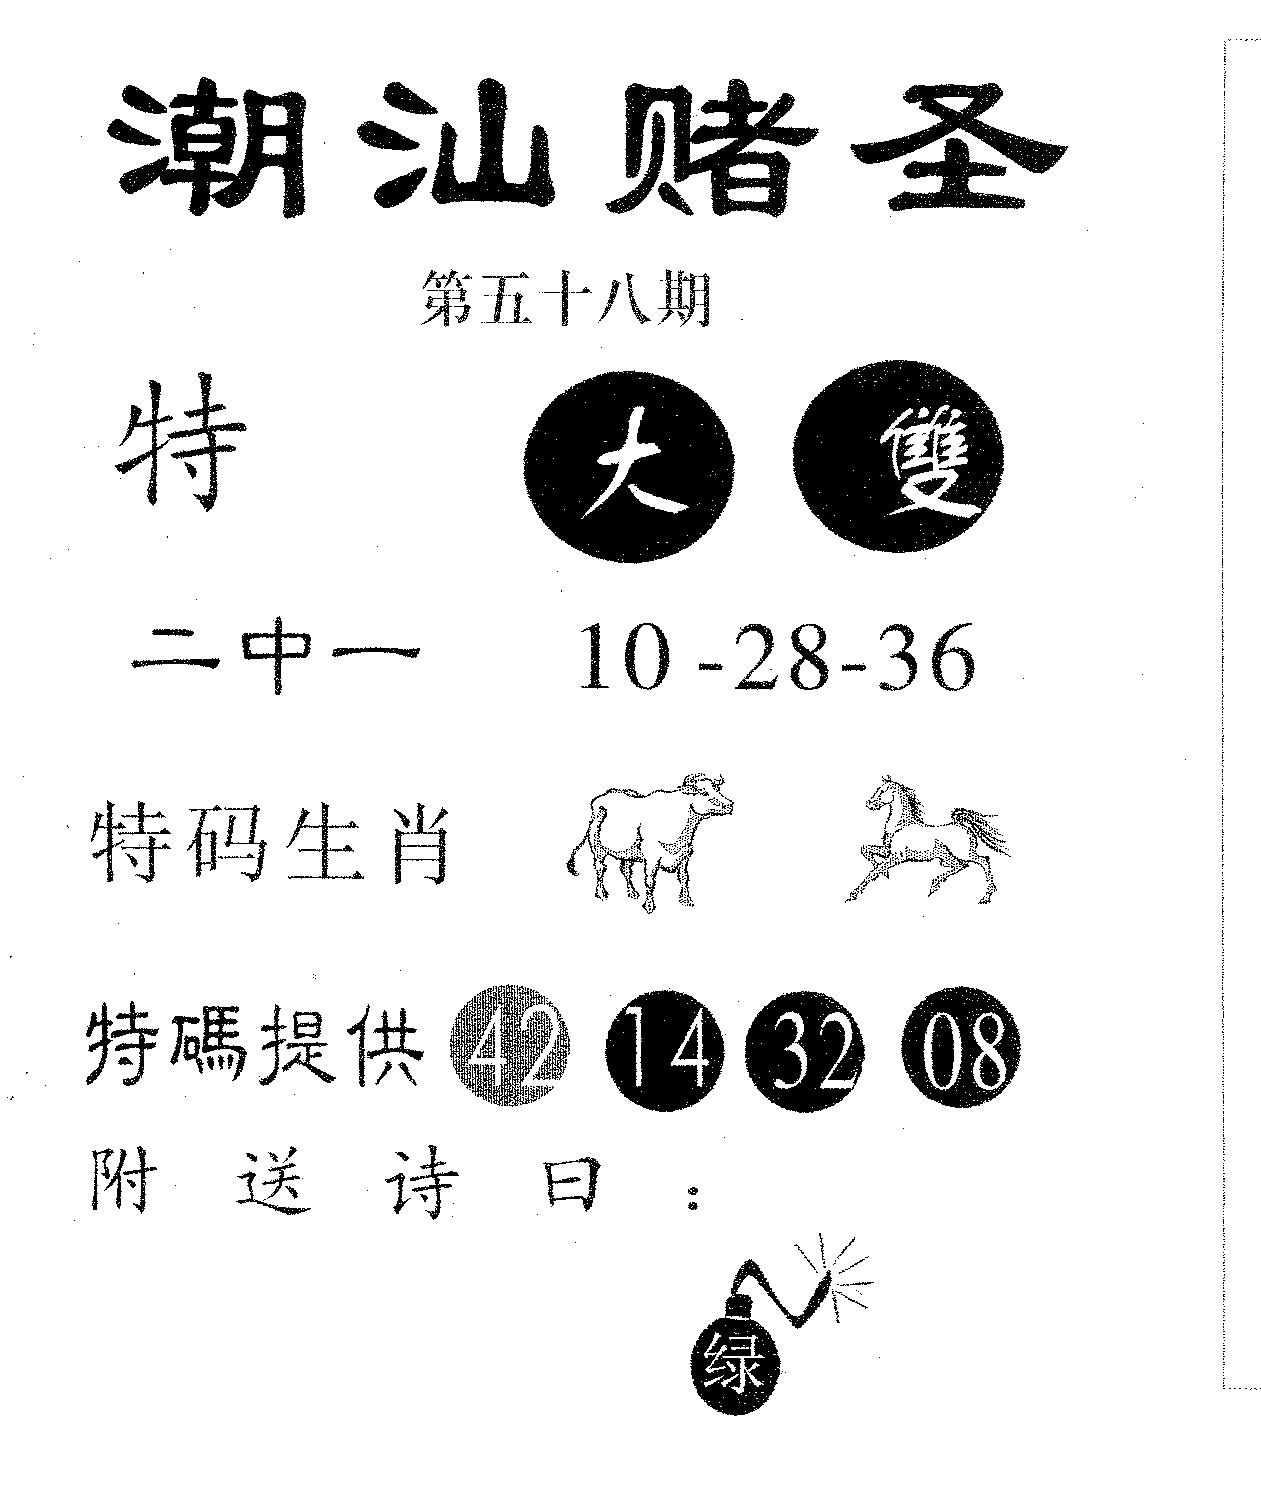 潮汕赌圣
第五十八期
特 大 雙
二中一 10-28-36
特码生肖
特碼提供 42 14 32 08
附送诗曰：
绿